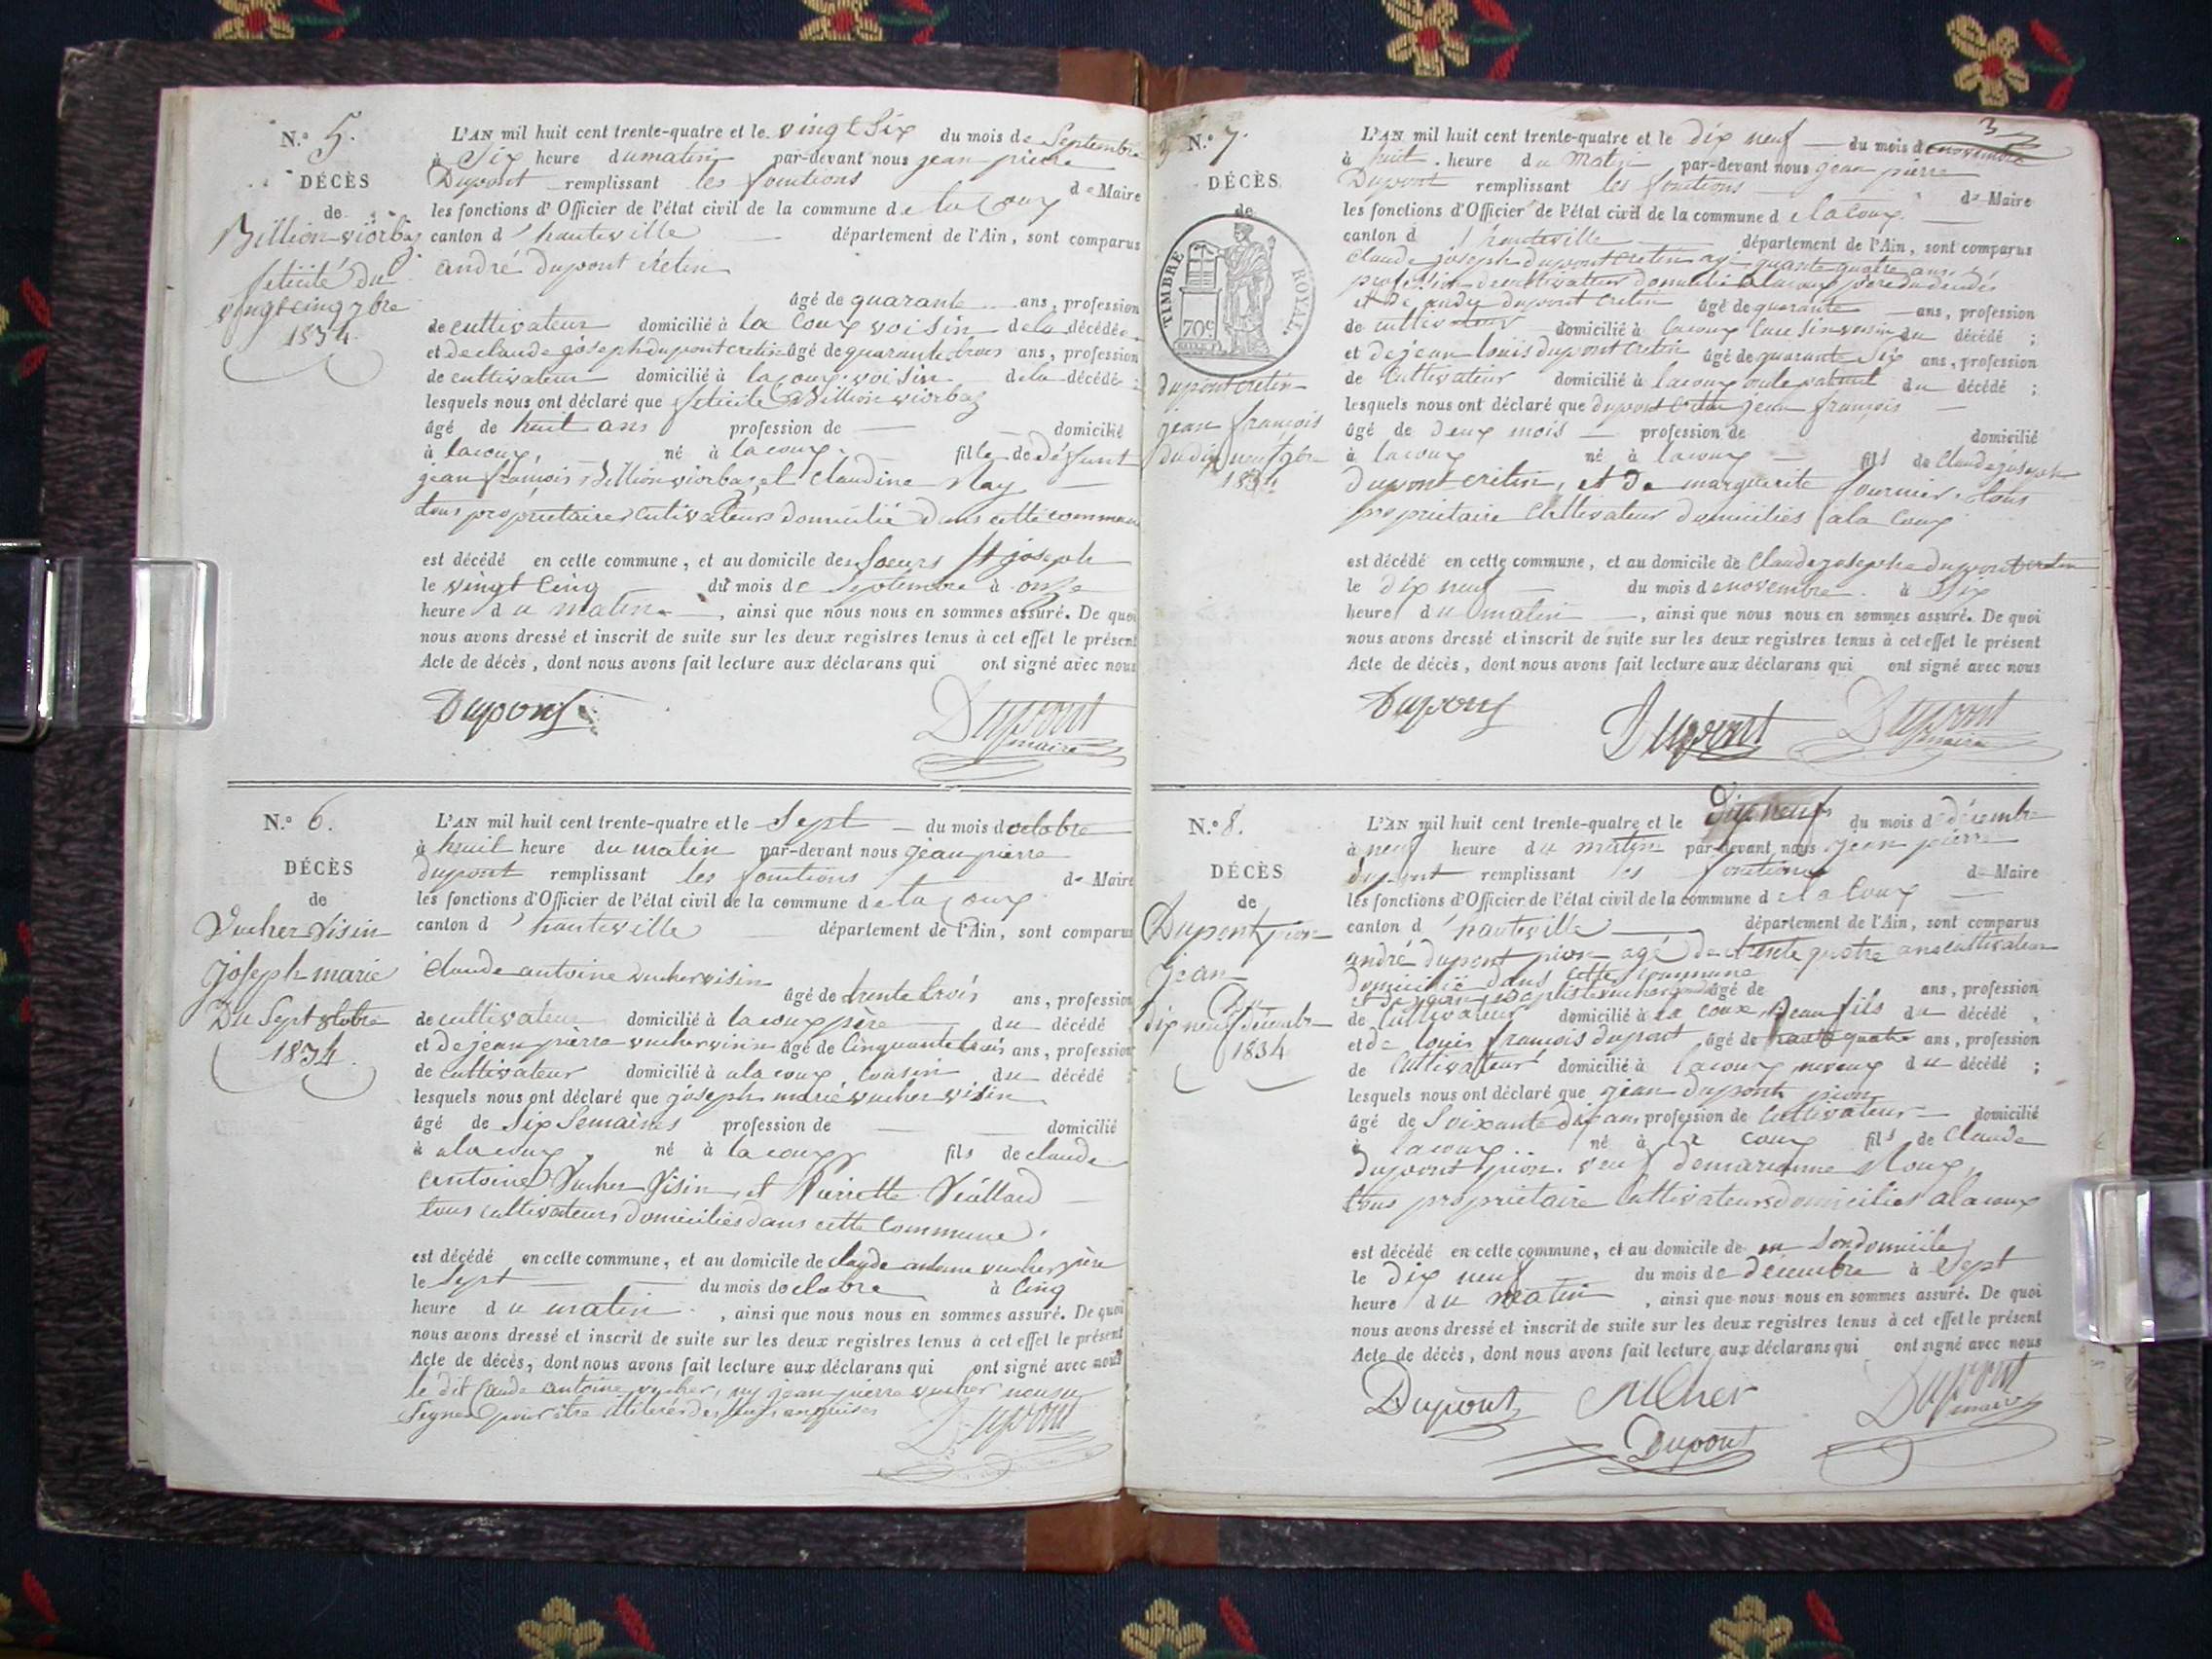 N.o 5.
DÉCÈS
de
Billion-viorbaz
félicité du
vingt cinq 7bre
1834.
L'AN mil huit cent trente-quatre et le vingt Six du mois de Septembre
à Six heure du matin par-devant nous jean pierre
Dupont remplissant les fonctions de Maire
les fonctions d'Officier de l'état civil de la commune de la Coux
canton d'hauteville département de l'Ain, sont comparus
andré dupont cretin
âgé de quarante ans, profession
de cultivateur domicilié à la Coux voisin de la décédée
et de claude joseph dupont cretin âgé de quarante trois ans, profession
de cultivateur domicilié à lacoux voisin de la décédé ;
lesquels nous ont déclaré que félicité Billion viorbaz
âgé de huit ans profession de domicilié
à lacoux, né à lacoux fille de défunt
jean françois Billion viorbaz, et Claudine Nay
tous propriétaires cultivateurs domicilié dans cette commune
est décédé en cette commune, et au domicile des Soeurs St joseph
le vingt Cinq du mois de Septembre à onze
heure du matin, ainsi que nous nous en sommes assuré. De quoi
nous avons dressé et inscrit de suite sur les deux registres tenus à cet effet le présent
Acte de décès, dont nous avons fait lecture aux déclarans qui ont signé avec nous
Dupont Dupont
maire
N.o 6.
DÉCÈS
de
Vucher Visin
joseph marie
Du Sept 8bre
1834.
L'AN mil huit cent trente-quatre et le Sept du mois d'octobre
à huit heure du matin par-devant nous jean pierre
dupont remplissant les fonctions de Maire
les fonctions d'Officier de l'état civil de la commune de la Coux
canton d'hauteville département de l'Ain, sont comparus
Claude antoine vucher visin
âgé de trente trois ans, profession
de cultivateur domicilié à lacoux père du décédé
et de jean pierre vucher visin âgé de Cinquante trois ans, profession
de cultivateur domicilié à alacoux cousin du décédé ;
lesquels nous ont déclaré que joseph marie vucher visin
âgé de Six Semaines profession de domicilié
à alacoux, né à lacoux fils de claude
antoine Vucher Visin, et Pierrette
tous cultivateurs domiciliés dans cette Commune.
est décédé en cette commune, et au domicile de claude antoine vucher père
le Sept du mois d'octobre à Cinq
heure du matin, ainsi que nous nous en sommes assuré. De quoi
nous avons dressé et inscrit de suite sur les deux registres tenus à cet effet le présent
Acte de décès, dont nous avons fait lecture aux déclarans qui ont signé avec nous
le dit Claude antoine vucher, ny jean pierre vucher
Signer pour être illiterés de ce enquis
Dupont
3
N.o 7.
DÉCÈS
de
TIMBRE ROYAL.
70c
dupont cretin
jean françois
du dix neuf 9bre
1834
L'AN mil huit cent trente-quatre et le dix neuf du mois de novembre
à huit heure du Matin par-devant nous jean pierre
Dupont remplissant les fonctions de Maire
les fonctions d'Officier de l'état civil de la commune de lacoux
canton d'hauteville département de l'Ain, sont comparus
Claude joseph dupont cretin agé quarante quatre ans,
profession de cultivateur domicilié à lacoux père du décédé
et de andré dupont cretin âgé de quarante ans, profession
de cultivateur domicilié à lacoux voisin du décédé ;
et de jean louis dupont cretin âgé de quarante Six ans, profession
de Cultivateur domicilié à lacoux oncle paternel du décédé ;
lesquels nous ont déclaré que dupont cretin jean françois
âgé de Deux mois profession de domicilié
à lacoux né à lacoux fils de Claude joseph
dupont cretin, et de marguerite fournier, tous
propriétaire Cultivateur domiciliés à la Coux
est décédé en cette commune, et au domicile de Claude joseph dupont cretin
le dix neuf du mois de novembre à Six
heure du matin, ainsi que nous nous en sommes assuré. De quoi
nous avons dressé et inscrit de suite sur les deux registres tenus à cet effet le présent
Acte de décès, dont nous avons fait lecture aux déclarans qui ont signé avec nous
Dupont Dupont Dupont
maire
N.o 8.
DÉCÈS
de
Dupont pion
jean
Du
dix neuf décembre
1834
L'AN mil huit cent trente-quatre et le dix neuf du mois de décembre
à neuf heure du matin par-devant nous jean pierre
dupont remplissant les fonctions de Maire
les fonctions d'Officier de l'état civil de la commune de la Coux
canton d'hauteville département de l'Ain, sont comparus
andré dupont pion agé de trente quatre ans cultivateur
domicilié dans cette commune
et de jean baptiste vucher âgé de ans, profession
de Cultivateur domicilié à la Coux Beau fils du décédé,
et de louis françois dupont âgé de quatre ans, profession
de Cultivateur domicilié à lacoux neveux du décédé ;
lesquels nous ont déclaré que jean dupont pion
âgé de Soixante dix ans, profession de Cultivateur domicilié
à lacoux né à la Coux fils de Claude
dupont pion. veuf de marianne
tous propriétaire Cultivateurs domiciliés à lacoux
est décédé en cette commune, et au domicile de en Son domicile
le Dix neuf du mois de décembre à Sept
heure du Matin, ainsi que nous nous en sommes assuré. De quoi
nous avons dressé et inscrit de suite sur les deux registres tenus à cet effet le présent
Acte de décès, dont nous avons fait lecture aux déclarans qui ont signé avec nous
Dupont Vucher Dupont
maire
Dupont